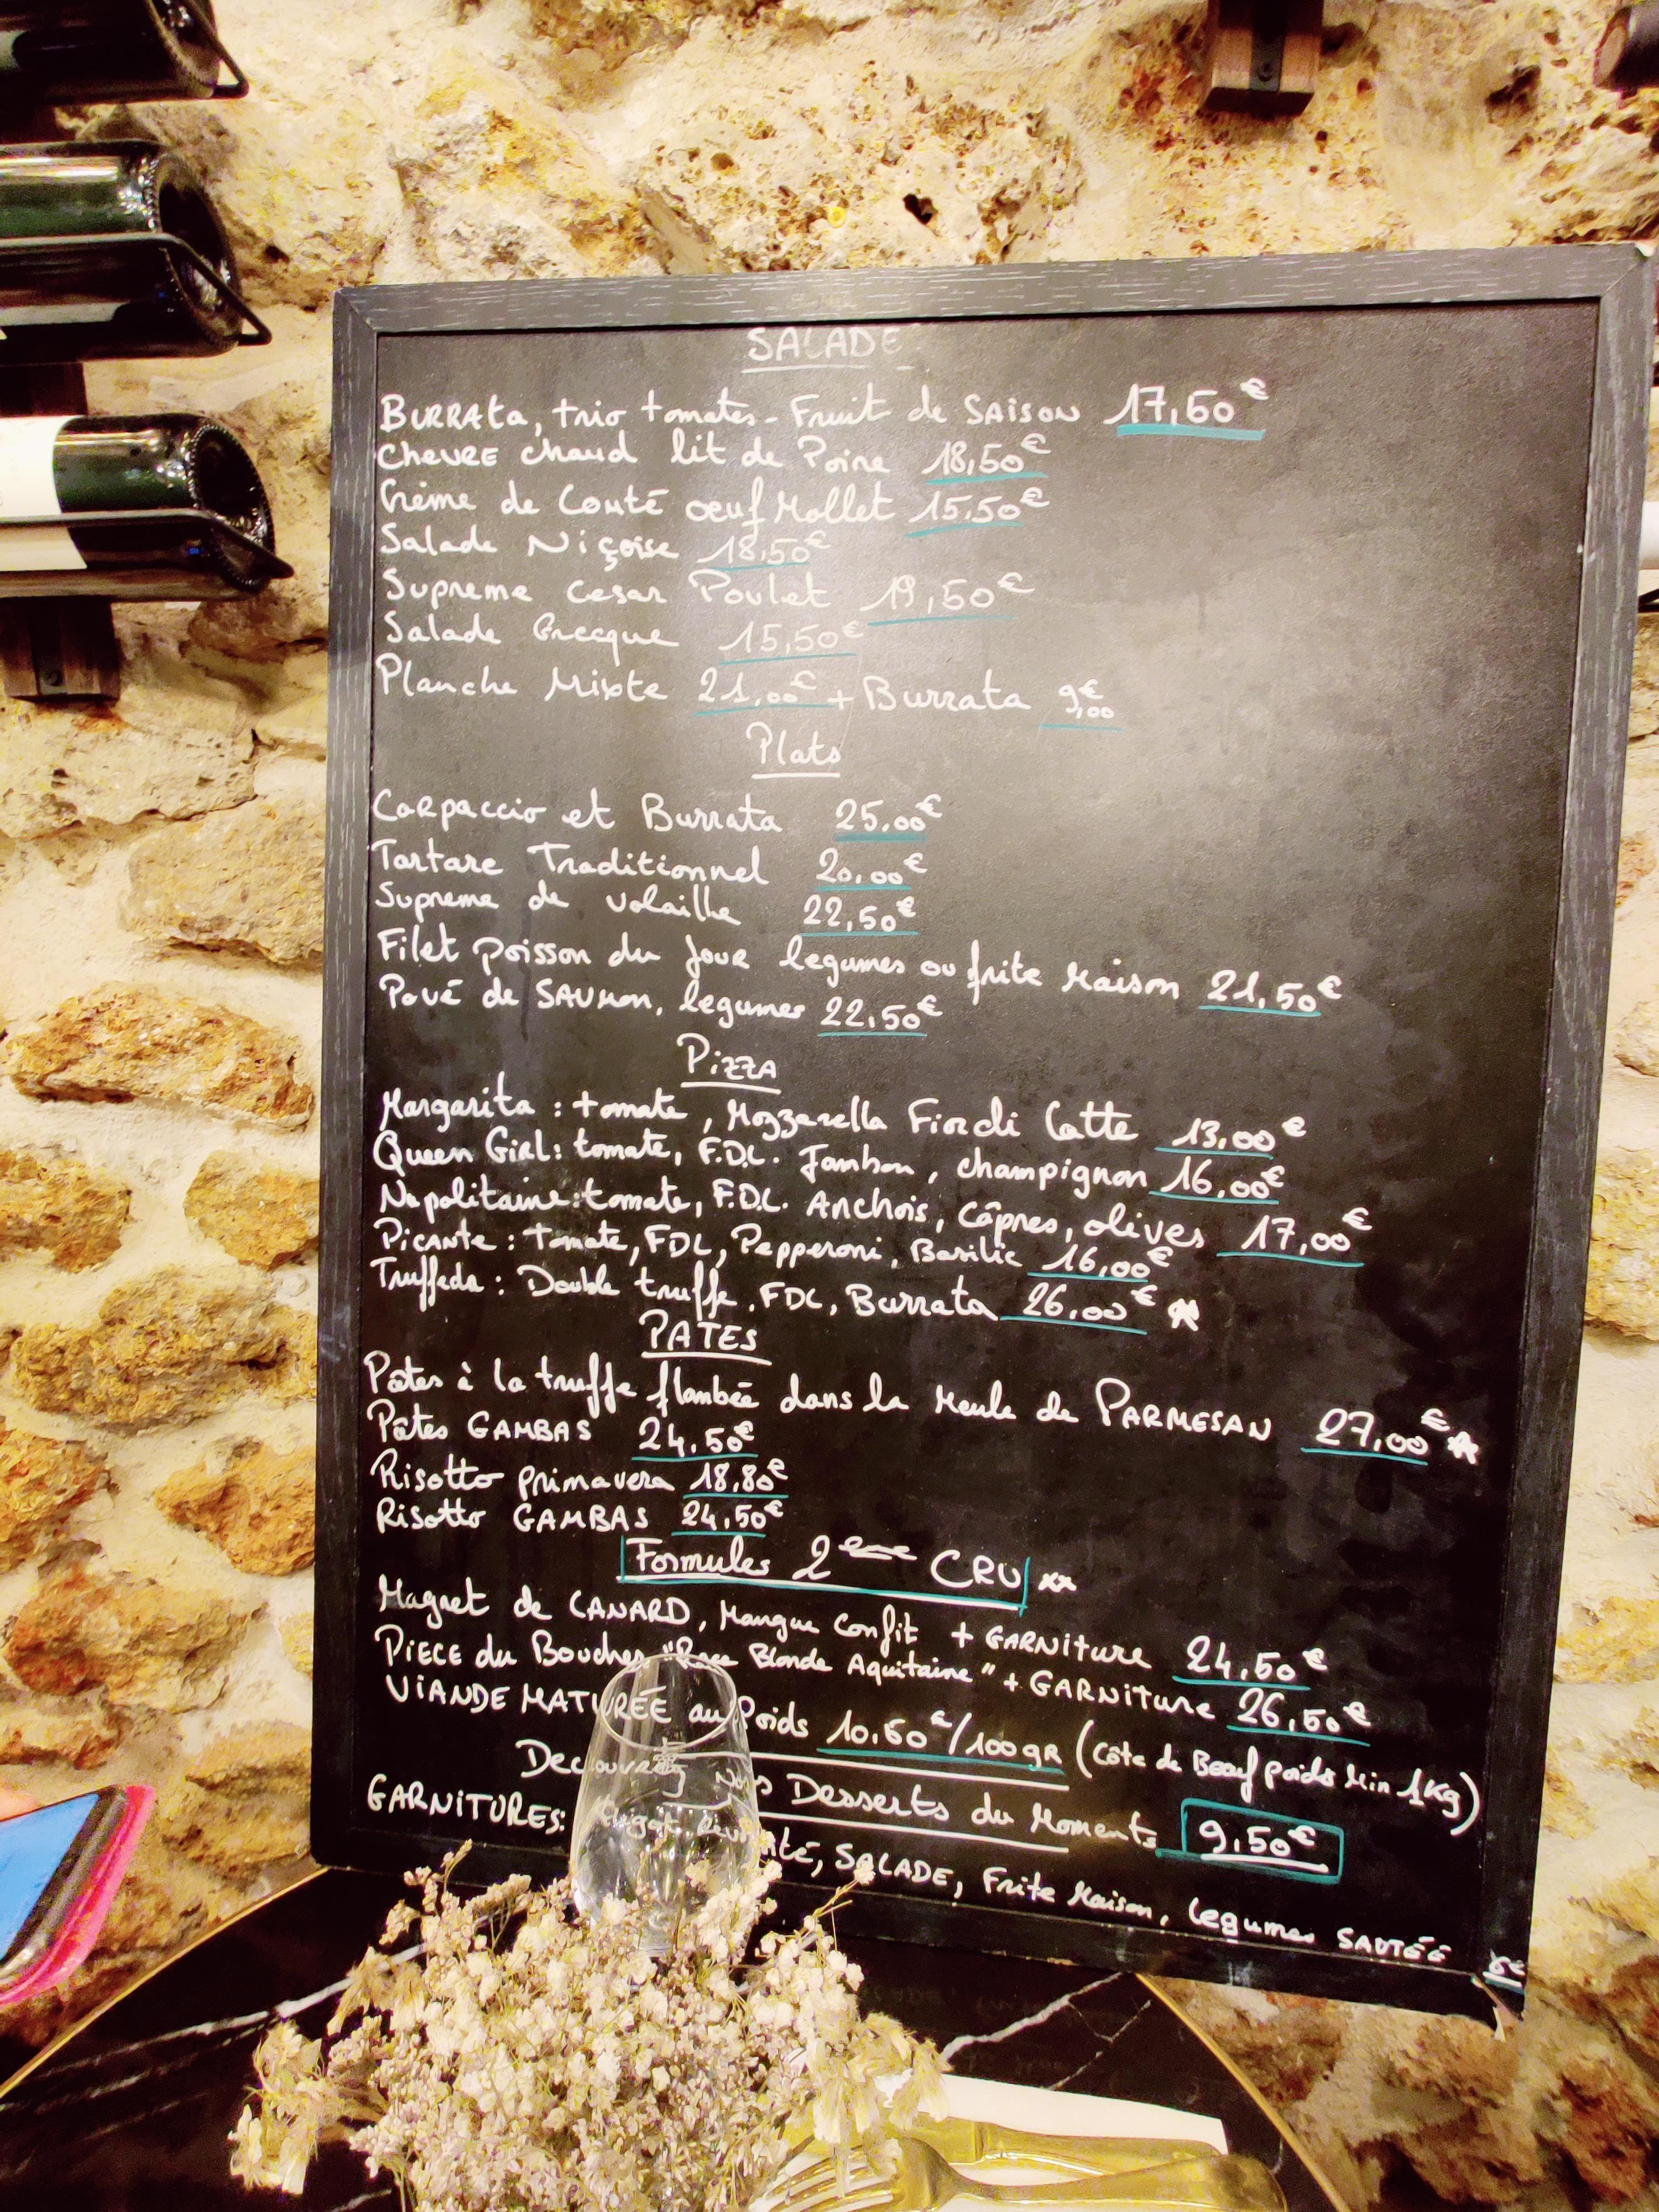 SALADE
BURRATA, trio tomates - Fruit de SAISON 17,50€
CHEVRE chaud lit de Poire 18,50€
Crème de Comté oeuf Mollet 15.50€
Salade Niçoise 18,50€
Supreme Cesar Poulet 19,50€
Salade Grecque 15,50€
Planche Mixte 21,00€ + Burrata 9,00€
Plats
Carpaccio et Burrata 25,00€
Tartare Traditionnel 20,00€
Supreme de volaille 22,50€
Filet poisson du jour legumes ou frite Maison 21,50€
Pavé de SAUMON, legumes 22,50€
PIZZA
Margarita : tomate, Mozzarella Fiordi Latte 13,00€
Queen Girl : tomate, F.D.L. Jambon, champignon 16,00€
Napolitaine : tomate, F.D.L. Anchois, Câpres, olives 17,00€
PICANTE : Tomate, FDL, Pepperoni, Basilic 16,00€
Truffeda : Double truffe, FDL, Burrata 26,00€
PATES
Pâtes à la truffe flambée dans la Meule de PARMESAN 27,00€
Pâtes GAMBAS 24,50€
Risotto primavera 18,80€
Risotto GAMBAS 24,50€
Formules 2eme CRU **
Magret de CANARD, Mangue Confit + GARNITURE 24,50€
PIECE du Boucher "Race Blonde Aquitaine" + GARNITURE 26,50€
VIANDE MATURÉE au Poids 10.50€/100gR (Côte de Boeuf poids Min 1Kg)
Decouvrez Nos Desserts du Moments 9,50€
GARNITURES: SALADE, Frite Maison, legumes SAUTÉÉ